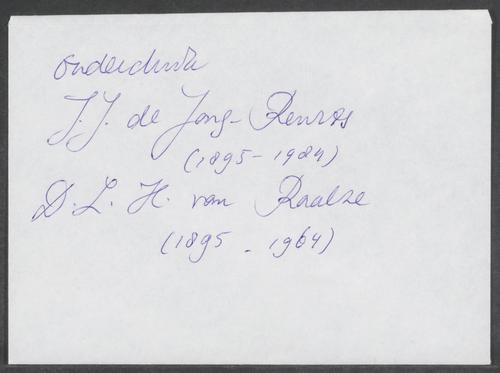 onderdruk
J. J. de Jong-
(1895-1984)
D. L. H. van Raalte
(1895-1964)